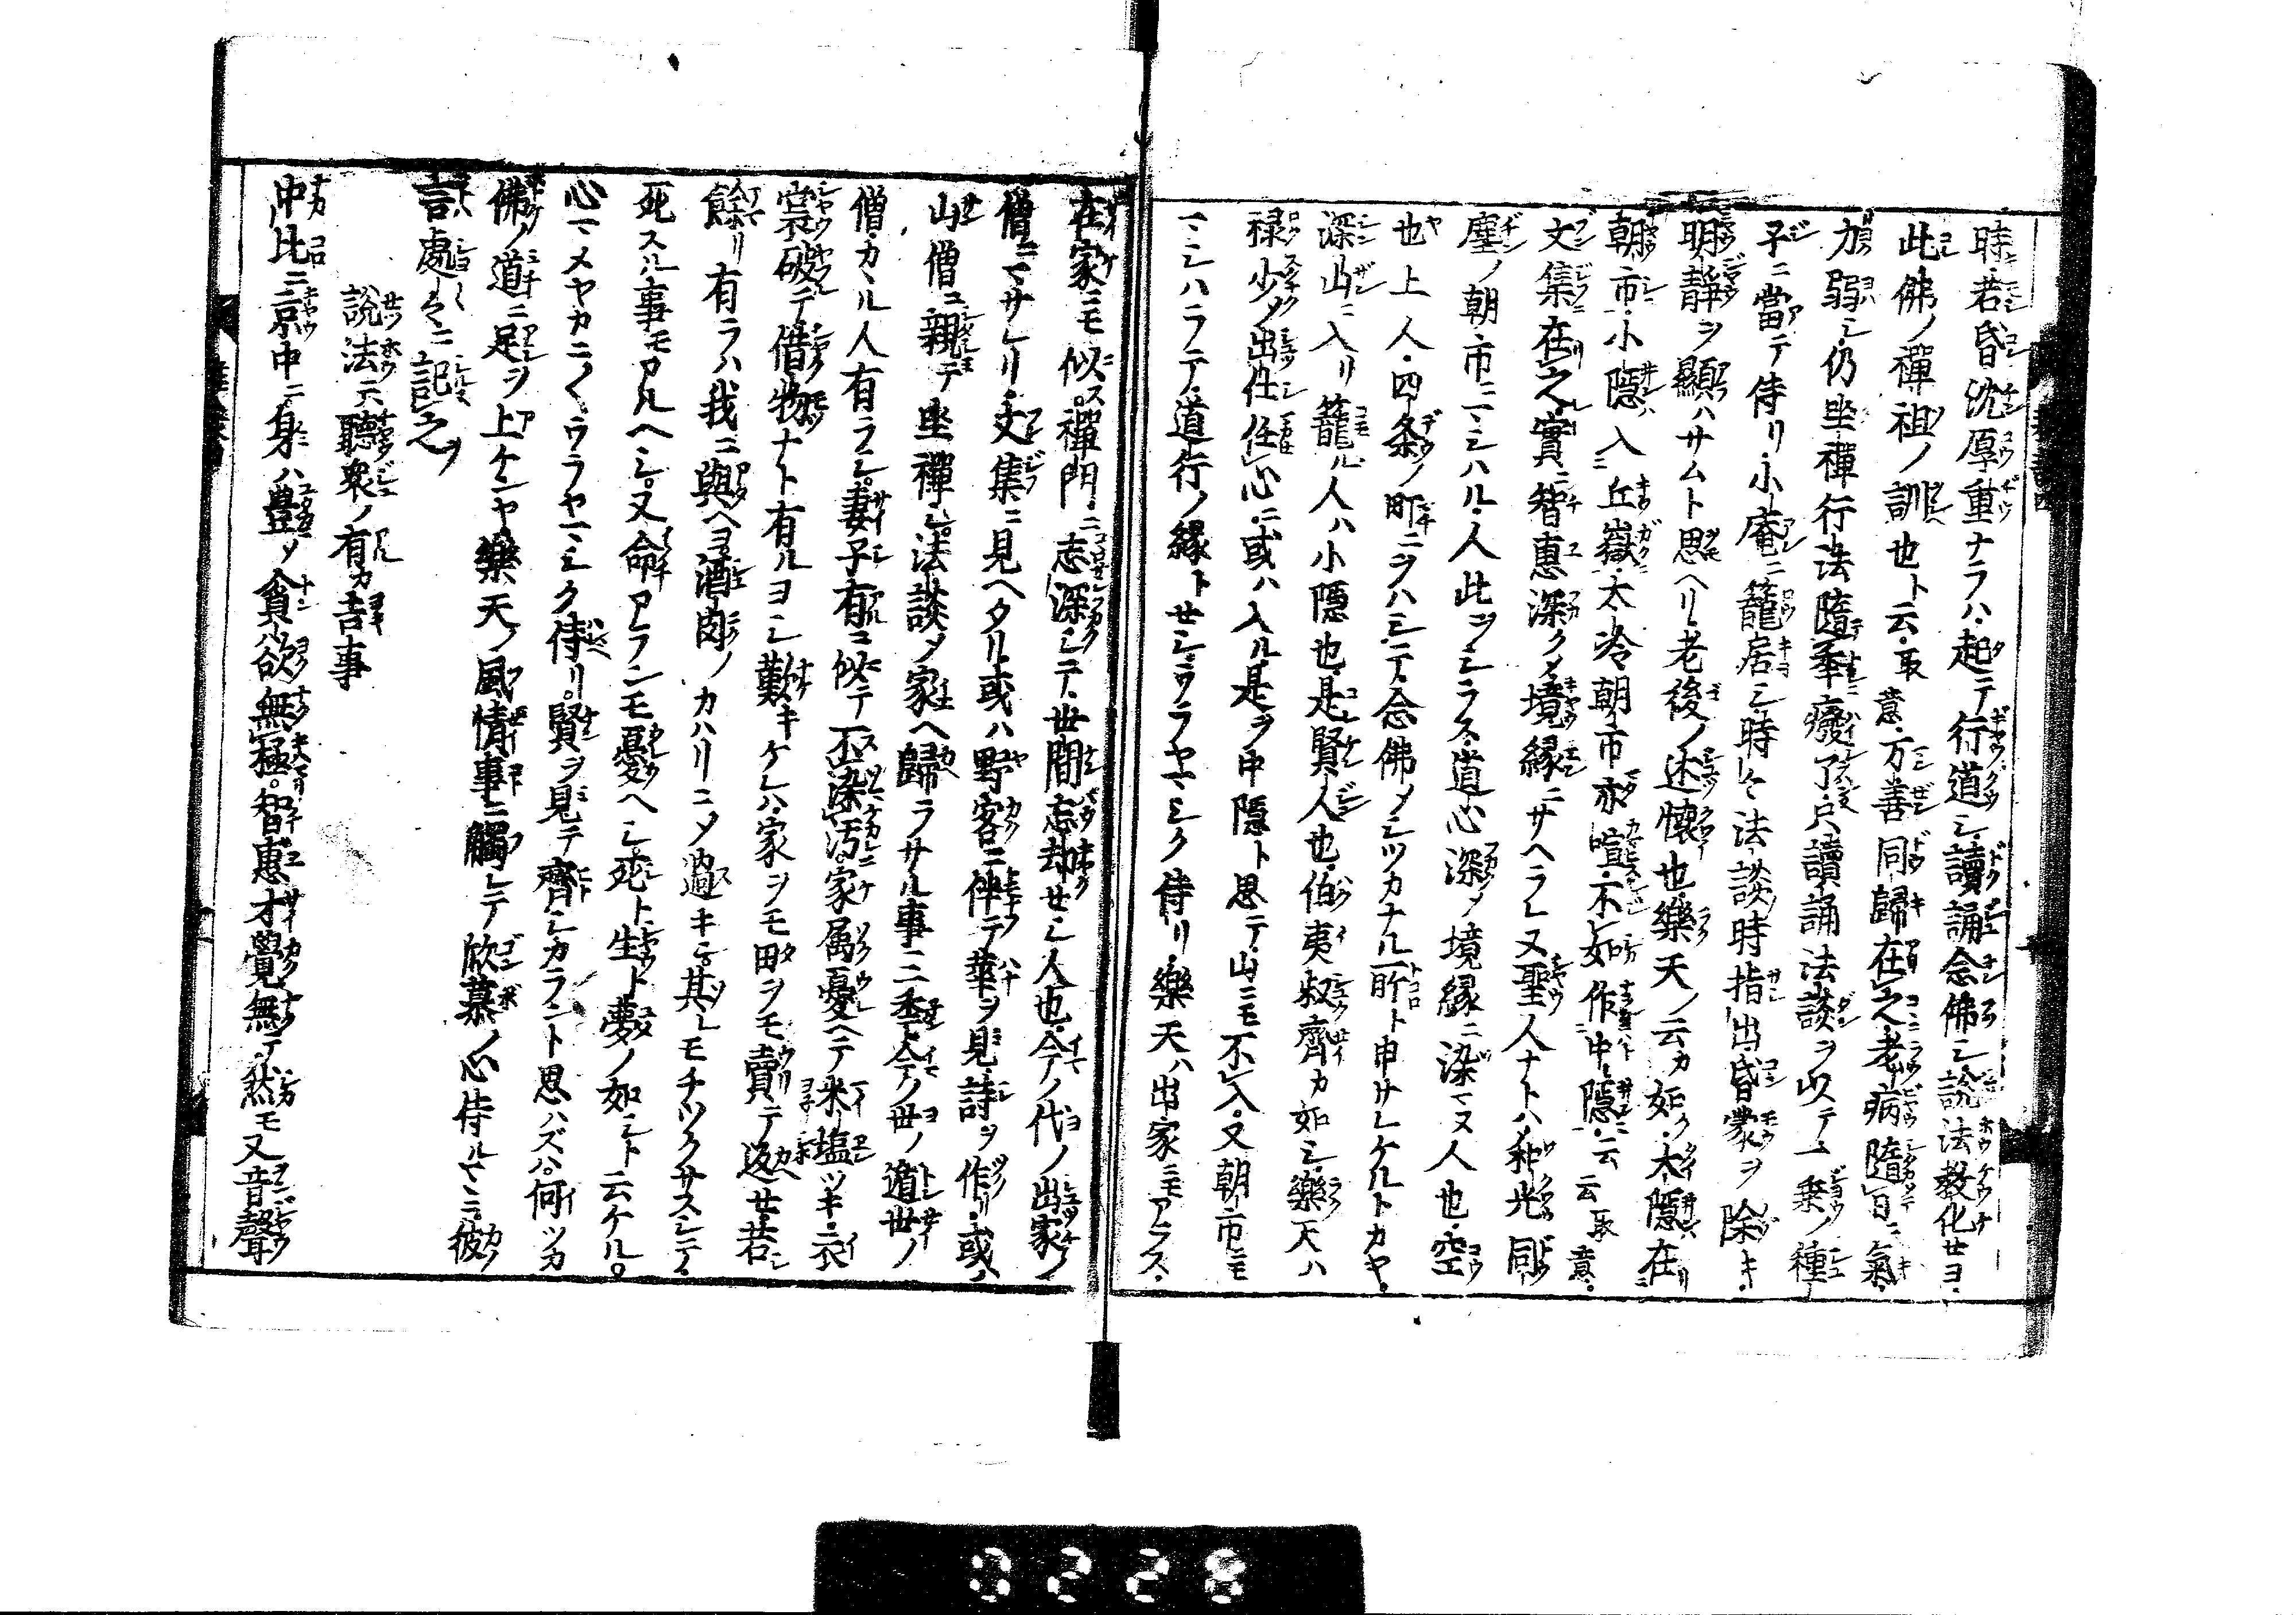 時ニ若昏沈厚重ナラハ起テ行道シ讀誦念佛シ説法教化セヨ
此佛ノ禪祖ノ訓也ト云取意万善同歸在之老病隨日ニ氣
力弱シ仍坐禪行法隨年癈了只讀誦法談ヲ以テ一乘ノ種
子ニ當テ侍リ小庵ニ籠居シ時々法談時指出昏蒙ヲ除キ
明静ヲ顯ハサムト思ヘリ老後ノ述懷也樂天ノ云カ如ク大隱在
朝市小隱入丘嶽太冷朝市亦喧不如作中隱云云取意
文集在之實ニ智惠深クメ境縁ニサヘラレ又聖人ナトハ和光同
塵ノ朝市ニマシハル人此ヲシラス道心深メ境縁ニ染マヌ人也空
也上人四条ノ町ニヲハシテ念佛メシツカナル所ト申サレケルトカヤ
深山ニ入リ籠ル人ハ小隱也是賢人也伯夷叔齊カ如シ樂天ハ
禄少メ出仕任心ニ或ハ入ル是ヲ中隱ト思テ山ニモ不入又朝市ニモ
マシハラテ道行ノ縁トセシウラヤマシク侍リ樂天ハ出家ニモアラス
在家ニモ似ス禪門ニ志深シテ世間忘却セシ人也今ノ代ノ出家ノ
僧ニマサレリ文集ニ見ヘタリ或ハ野客ニ伴テ華ヲ見詩ヲ作リ或ハ
山僧ニ親テ坐禪シ法談メ家ヘ歸ラサル事二季今ノ世ノ遁世ノ
僧カヽル人有ラシ妻子有ニ似テ不染汚家属憂ヘテ米塩ツキ衣
裳破テ借物ナト有ルヨシ歎キケレハ家ヲモ田ヲモ賣テ返セ若
餘リ有ラハ我ニ與ヘヨ酒肉ノカハリニメ過キム其レモチツクサスシテ
死スル事モアルヘシ又命アランモ憂ヘシ死ト生ト夢ノ如シト云ケル
心マメヤカニノクウラヤマシク侍リ賢ヲ見テ齊シカラント思ハズハ何ツカ
佛ノ道ニ足ヲ上ケンヤ樂天ノ風情事ニ觸レテ欣慕ノ心侍ルマヽニ彼
言處々ニ記之
説法ニテ聽衆ノ有カ吉事
中比三京中ニ身ハ豊メ貪欲無極智惠才覺無テ然モ又音聲